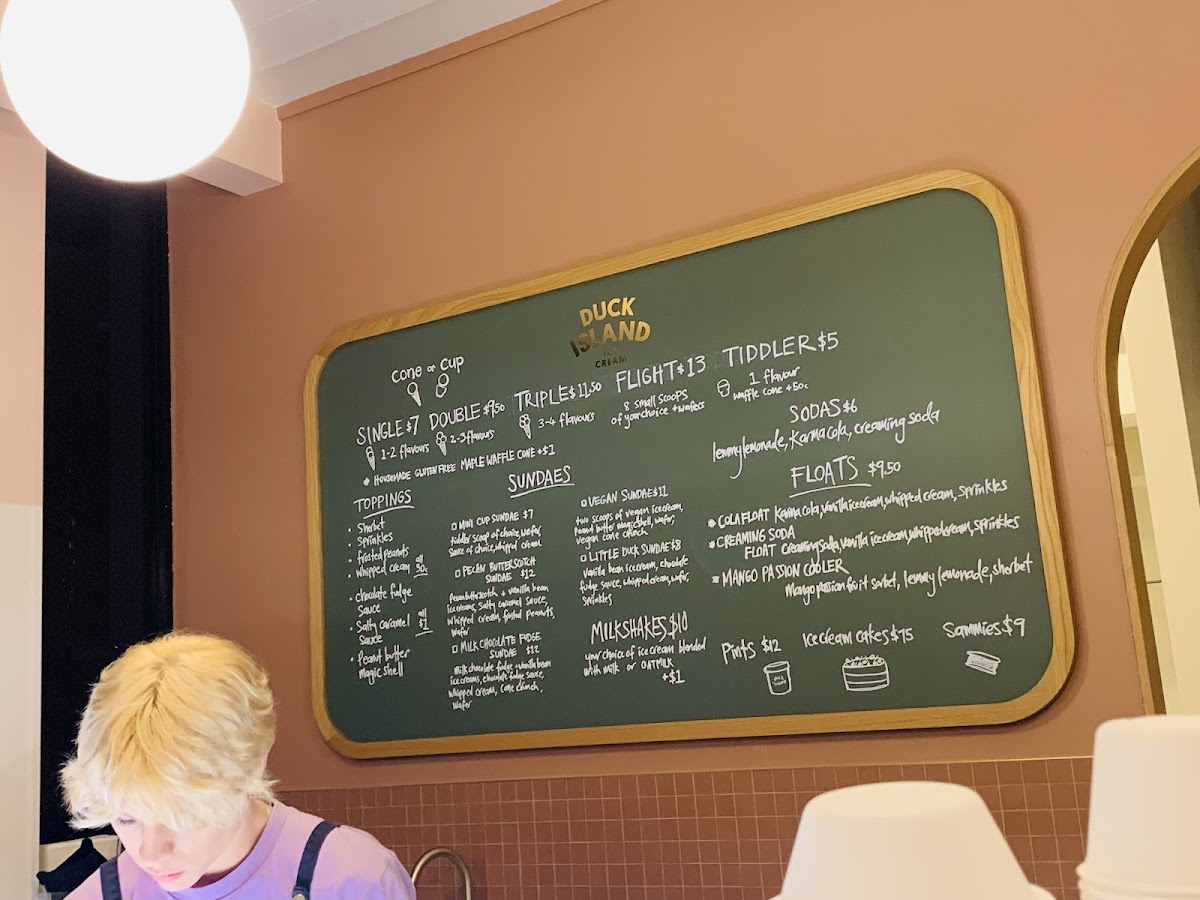 DUCK
ISLAND
ICE
CREAM
Cone or Cup
SINGLE $7
1-2 flavours
DOUBLE $9.50
2-3 flavours
TRIPLE $11.50
3-4 flavours
FLIGHT $13
8 small scoops
of your choice + wafers
TIDDLER $5
1 flavour
waffle cone +50c
* HOMEMADE GLUTEN FREE MAPLE WAFFLE CONE +$1
TOPPINGS
• Sherbet
• Sprinkles
• frosted peanuts
• whipped cream
all
50c
• chocolate fudge
Sauce
• Salty caramel
Sauce
• Peanut butter
magic shell
all
$1
SUNDAES
MINI CUP SUNDAE $7
tiddler scoop of choice, wafer,
Sauce of choice, whipped cream
PECAN BUTTERSCOTCH
SUNDAE $12
Pecan butterscotch + vanilla bean
ice creams, Salty caramel Sauce,
whipped cream, frosted peanuts,
wafer
MILK CHOCOLATE FUDGE
SUNDAE $12
milk chocolate fudge + vanilla bean
ice creams, chocolate fudge sauce,
whipped cream, cone crunch,
wafer
VEGAN SUNDAE $11
two scoops of vegan icecream,
Peanut butter magic shell, wafer,
vegan cone crunch
LITTLE DUCK SUNDAE $8
Vanilla bean icecream, chocolate
fudge sauce, whipped cream, wafer,
Sprinkles
MILKSHAKES $10
your choice of ice cream blended
with milk or OATMILK
+$1
SODAS $6
lemmy lemonade, Karma cola, creaming soda
FLOATS $9.50
* COLA FLOAT Karma cola, vanilla icecream, whipped cream, sprinkles
* CREAMING SODA
FLOAT Creaming Soda, vanilla icecream, whipped cream, sprinkles
* MANGO PASSION COOLER
Mango passionfruit sorbet, lemmy lemonade, sherbet
Pints $12
Ice cream cakes $75
Sammies $9